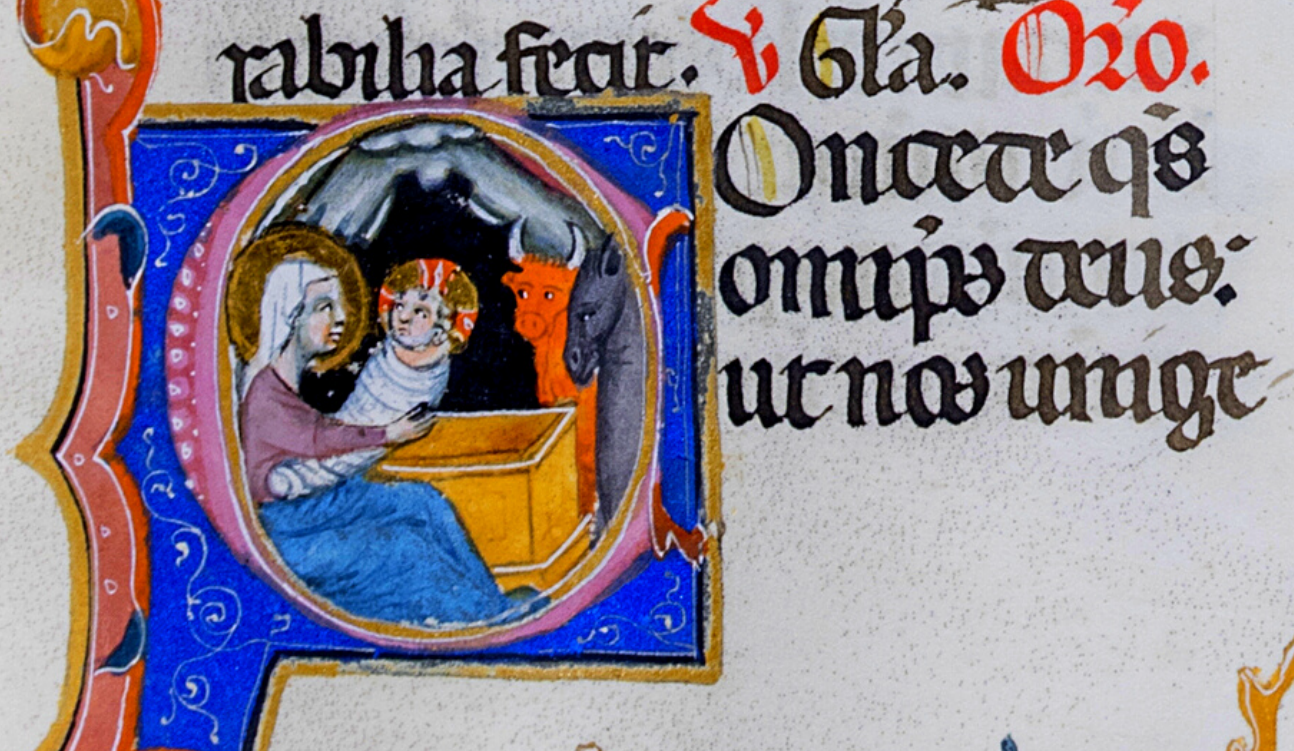 rabilia fecit. V Gl'a. Oro.
Oncete qs
omips deus:
ut nos unige